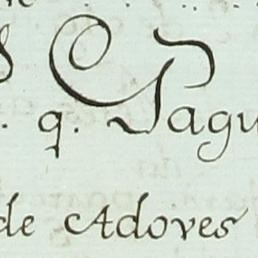 q. Pagu
de Adoves